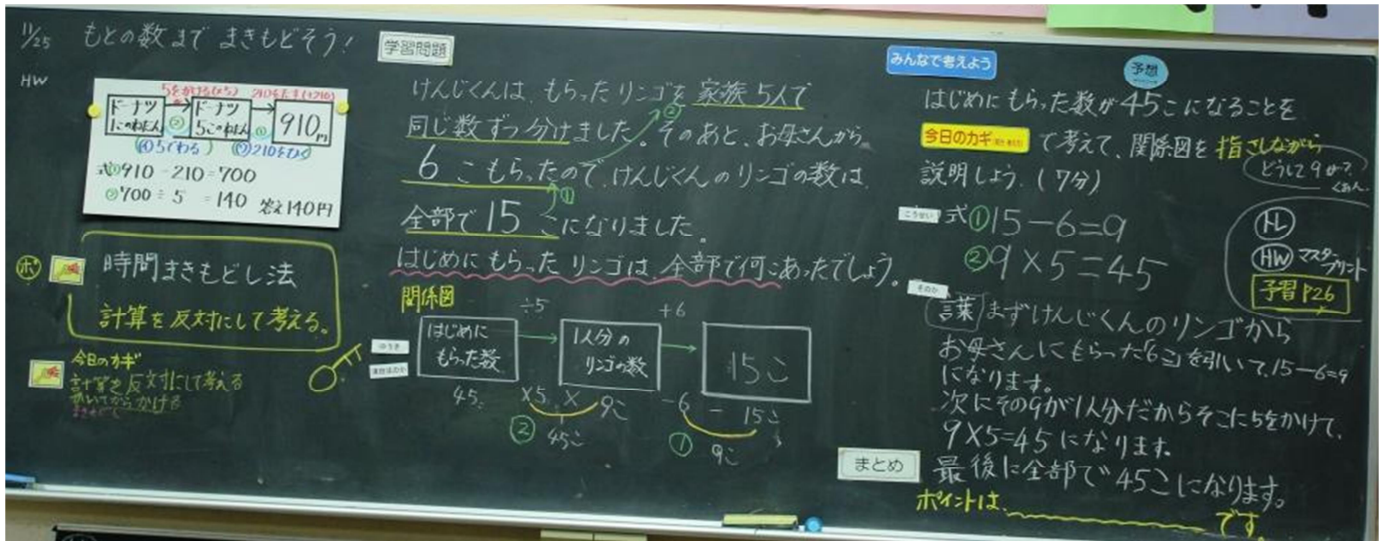 11/25 もとの数まで まきもどそう!
HW
5をかける(×5) 210をたす(+210)
ドーナツ
1このねだん
ドーナツ
5このねだん
910円
② ①
5でわる 210をひく
式①910-210=700
②700÷5=140 答え140円
ポ
時間まきもどし法
計算を反対にして考える。
今日のカギ
計算を反対にして考える
ひいてからかける
学習問題
けんじくんは、もらったリンゴを 家族 5人で
②
同じ数ずつ分けました。そのあと、お母さんから
6 こもらったので、けんじくんのリンゴの数は、
①
全部で15 こになりました。
はじめにもらったリンゴは、全部で何こあったでしょう。
関係図
÷5 +6
はじめに
もらった数
1人分の
リンゴの数
15こ
45 ×5 × 9こ -6 - 15こ
② 45こ ① 9こ
みんなで考えよう
予想
はじめにもらった数が45こになることを
今日のカギ で考えて、関係図を 指さしながら
説明しよう.(7分)
どうして9が
式①15-6=9
②9×5=45
HW マスタープリント
予習 P26
言葉 まずけんじくんのリンゴから
お母さんにもらった「6こ」を引いて、15-6=9
になります。
次にその9が1人分だからそこに5をかけて、
9×5=45になります。
まとめ
最後に全部で45こになります。
ポイントは、 です。